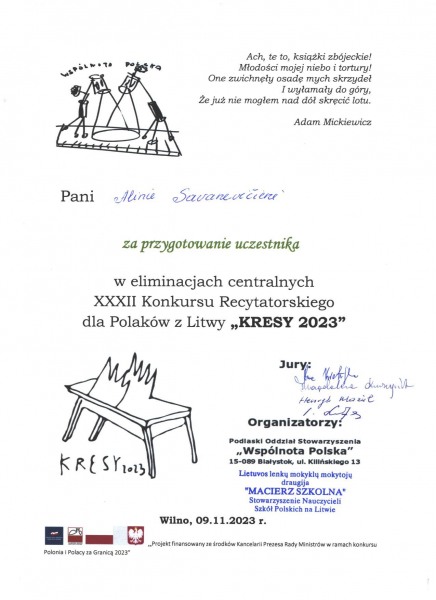 WSPÓLNOTA POLSKA
Ach, te to, książki zbójeckie!
Młodości mojej niebo i tortury!
One zwichnęły osadę mych skrzydeł
I wyłamały do góry,
Że już nie mogłem nad dół skręcić lotu.
Adam Mickiewicz
Pani Alinie Savanevičienė
za przygotowanie uczestnika
w eliminacjach centralnych
XXXII Konkursu Recytatorskiego
dla Polaków z Litwy „KRESY 2023”
Jury:
Magdalena
Henryk
KRESY 2023
Organizatorzy:
Podlaski Oddział Stowarzyszenia
„Wspólnota Polska”
15-089 Białystok, ul. Kilińskiego 13
Lietuvos lenkų mokyklų mokytojų
draugija
"MACIERZ SZKOLNA"
Stowarzyszenie Nauczycieli
Szkół Polskich na Litwie
Wilno, 09.11.2023 r.
„Projekt finansowany ze środków Kancelarii Prezesa Rady Ministrów w ramach konkursu
Polonia i Polacy za Granicą 2023”